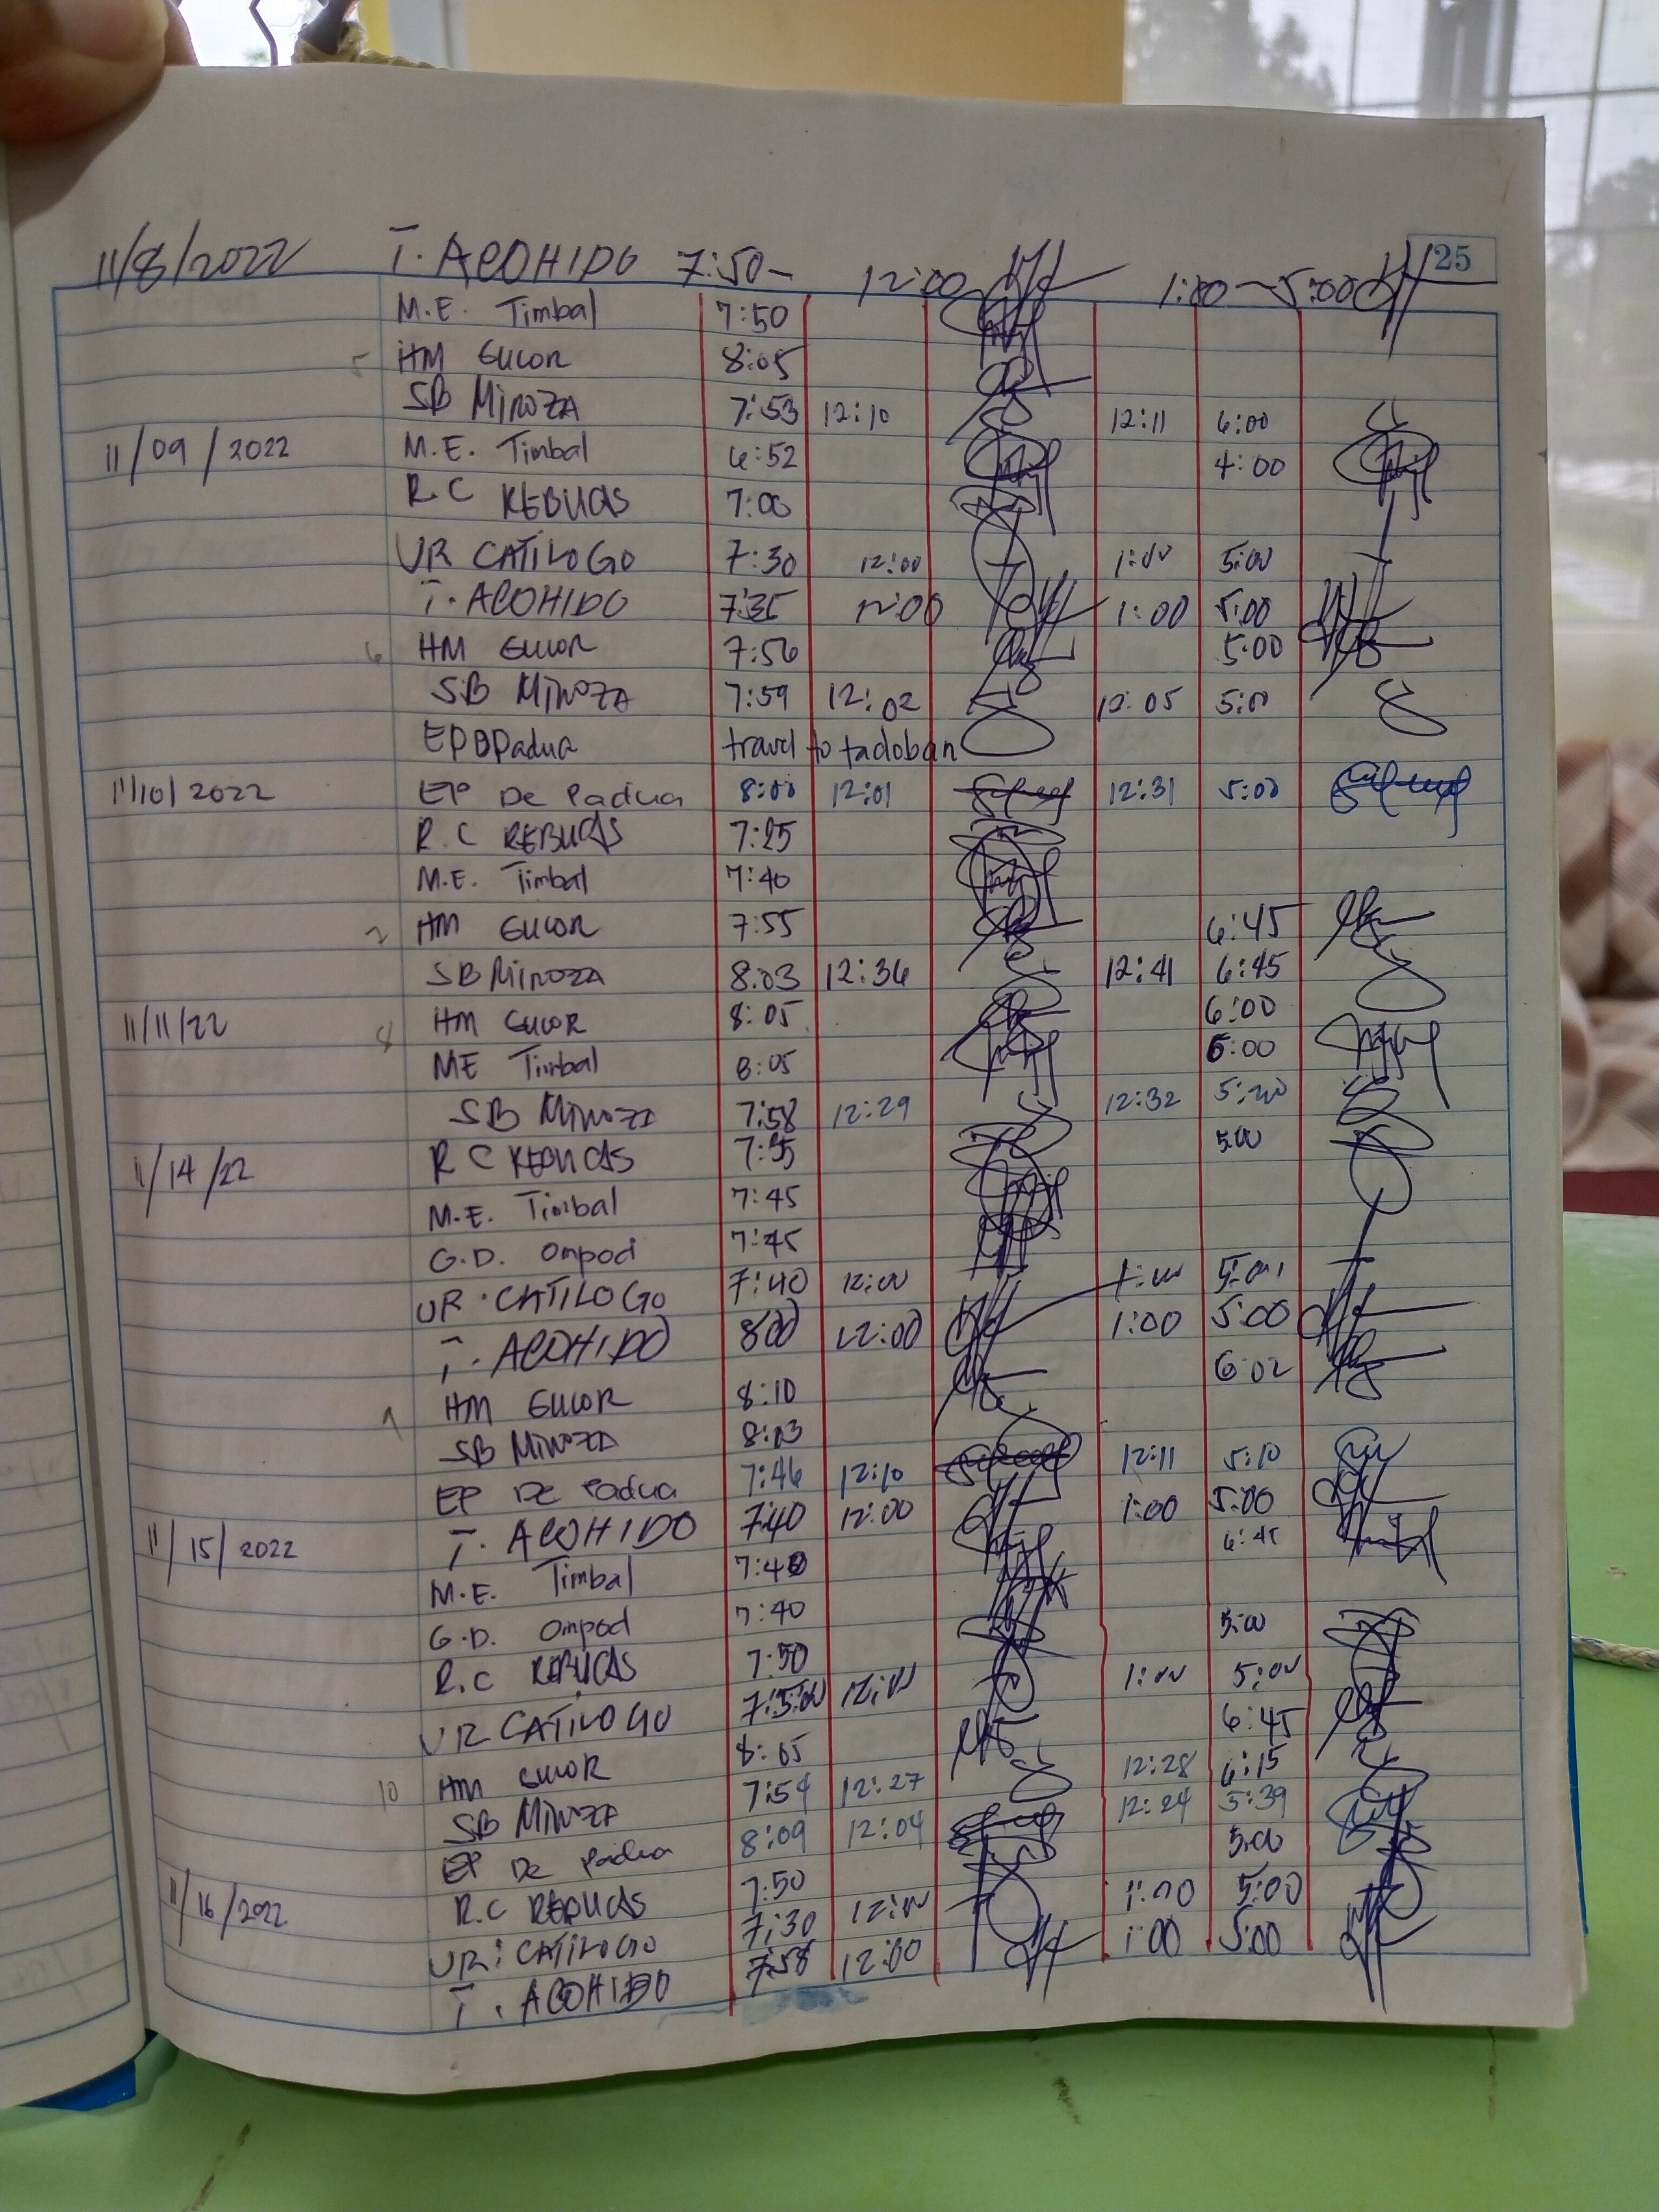 25
11/8/2022 T. ACOHIDO 7:50- 12:00 1:00-5:00
M.E. Timbal 7:50
5 HM 8:05
SB MINOZA 7:53 12:10 12:11 6:00
11/09/2022 M.E. Timbal 6:52 4:00
R.C REBUCAS 7:00
UR CATILOGO 7:30 12:00 1:00 5:00
T. ACOHIDO 7:35 12:00 1:00 5:00
6 HM 7:56 5:00
SB MINOZA 7:59 12:02 12:05 5:00
EPDPadua travel to tacloban
11/10/2022 EP De Padua 8:00 12:01 12:31 5:00
R.C REBUCAS 7:25
M.E. Timbal 7:40
7 HM 7:55 6:45
SB MINOZA 8:03 12:36 12:41 6:45
11/11/22 8 HM 8:05 6:00
ME Timbal 8:05 6:00
SB MINOZA 7:58 12:29 12:32 5:20
11/14/22 R C REBUCAS 5:00
M.E. Timbal 7:45
G.D. Ompod 7:45
UR. CATILOGO 7:40 12:00 1:00 5:00
T. ACOHIDO 8:00 12:00 1:00 5:00
9 HM 8:10 6:02
SB MINOZA 8:03
EP De Padua 7:46 12:10 12:11 5:10
11/15/2022 T. ACOHIDO 7:40 12:00 1:00 5:00
M.E. Timbal 7:40 6:45
G.D. Ompod 7:40
R.C REBUCAS 7:50 5:00
UR CATILOGO 12:00 1:00 5:00
10 HM 8:05 6:45
SB MINOZA 7:54 12:27 12:28 6:15
EP De Padua 8:09 12:04 12:24 5:39
11/16/2022 R.C REBUCAS 7:50 5:00
UR. CATILOGO 7:30 12:00 1:00 5:00
T. ACOHIDO 7:58 12:00 1:00 5:00